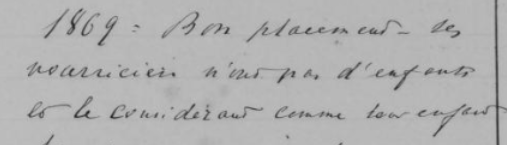 1869 = Bon placement – ses
nourriciers n'ont pas d'enfants
et le considérant comme leur enfant